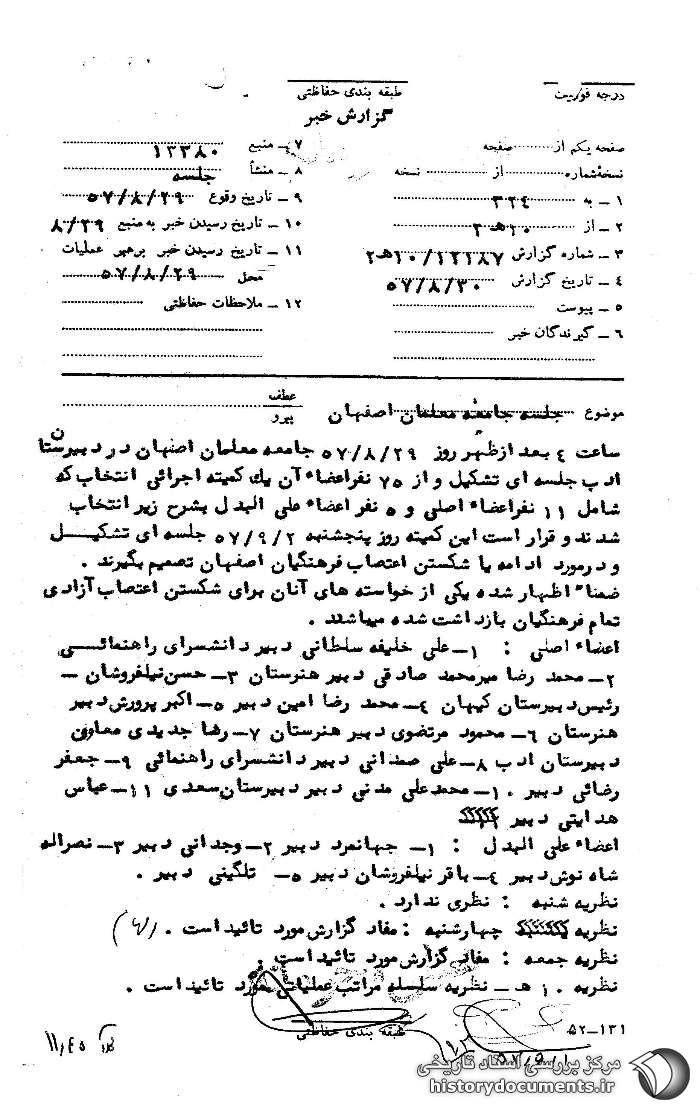 درجه فوریت
طبقه بندی حفاظتی
گزارش خبر
صفحه یکم از صفحه
نسخه‌شماره از نسخه
۱ – به ۳۲۴
۲ – از ۱۰هـ ۲
۳ – شماره گزارش ۲هـ۱۰/۱۲۱۸۷
۴ – تاریخ گزارش ۵۷/۸/۳۰
۵ – پیوست
۶ – گیرندگان خبر
۷ – منبع ۱۳۳۸۰
۸ – منشأ جلسه
۹ – تاریخ وقوع ۵۷/۸/۲۹
۱۰ – تاریخ رسیدن خبر به منبع ۸/۲۹
۱۱ – تاریخ رسیدن خبر برهبر عملیات
محل ۵۷/۸/۲۹
۱۲ – ملاحظات حفاظتی
موضوع جلسه جامعه معلمان اصفهان
عطف
پیرو
ساعت ۴ بعد ازظهر روز ۵۷/۸/۲۹ جامعه معلمان اصفهان در دبیرستان
ادب جلسه ای تشکیل و از ۷۵ نفراعضاء آن یك کمیته اجرائی انتخاب که
شامل ۱۱ نفراعضاء اصلی و ۵ نفر اعضاء علی البدل بشرح زیر انتخاب
شدند و قرار است این کمیته روز پنجشنبه ۵۷/۹/۲ جلسه ای تشکیـــل
و درمورد ادامه یا شکستن اعتصاب فرهنگیان اصفهان تصمیم بگیرند .
ضمناً اظهار شده یکی از خواسته های آنان برای شکستن اعتصاب آزادی
تمام فرهنگیان بازداشت شده میباشند .
اعضاء اصلی : ۱– علی خلیفه سلطانی دبیر دانشسرای راهنمائـــی
۲– محمد رضا میرمحمد صادقی دبیر هنرستان ۳– حسن نیلفروشان –
رئیس دبیرستان کیهان ۴– محمد رضا امین دبیر ۵– اکبر پرورش دبیر
هنرستان ۶– محمود مرتضوی دبیر هنرستان ۷– رضا جدیدی معاون
دبیرستان ادب ۸– علی صمدانی دبیر دانشسرای راهنمائی ۹– جعفر
رضائی دبیر ۱۰– محمدعلی مدنی دبیر دبیرستان سعدی ۱۱– عباس
هدایتی دبیر
اعضاء علی البدل : ۱– جهانمرد دبیر ۲– وجدانی دبیر ۳– نصراله
شاه نوش دبیر ۴– باقر نیلفروشان دبیر ۵– تلگینی دبیر .
نظریه شنبه : نظری ندارد .
نظریه چهارشنبه : مفاد گزارش مورد تائید است .
نظریه جمعه : مفاد گزارش مورد تائید است .
نظریه ۱۰ هـ – نظریه سلسله مراتب عملیاتی مورد تائید است .
۵۲–۱۳۱
طبقه بندی حفاظتی
۱۱,۴۵
۵۷/۹/۱
مرکز بررسی اسناد تاریخی
historydocuments.ir